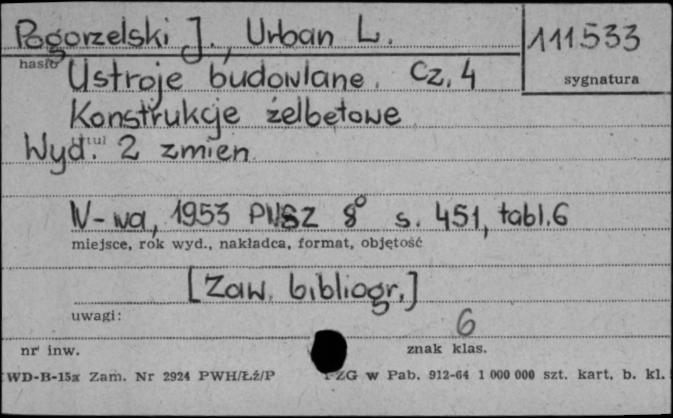 Pogorzelski J., Urban L.
111533
hasło
Ustroje budowlane. Cz. 4
sygnatura
Konstrukcje żelbetowe
tytuł
Wyd. 2 zmien.
W-wa, 1953 PWSZ 8° s. 451, tabl. 6
miejsce, rok wyd., nakładca, format, objętość
[Zaw. bibliogr.]
uwagi:
6
nr inw.
znak klas.
WD-B-15a Zam. Nr 2924 PWH/Łż/P PZG w Pab. 912-64 1 000 000 szt. kart. b. kl.